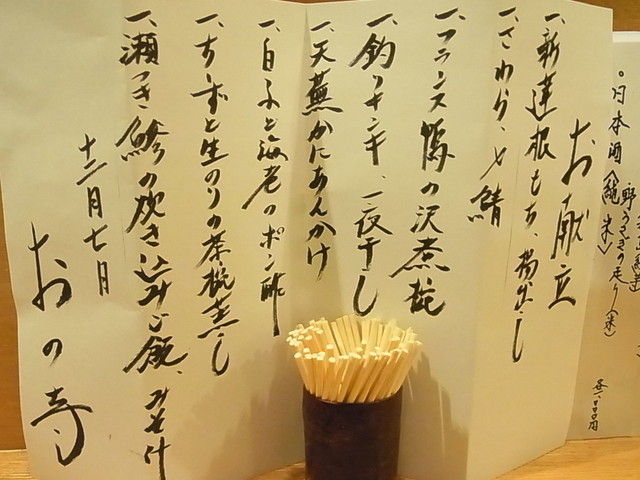 お献立
一、新蓮根もち、揚出し
一、さわら、〆鯖
一、フランス鴨の沢煮椀
一、釣りキンキ、一夜干し
一、天蕪かにあんかけ
一、白子と海老のポン酢
一、ちずと生のりの茶椀蒸し
一、瀬つき鯵の炊き込みご飯、みそ汁
十二月七日
おの寺
日本酒(純米)
野うさぎの走り(米)